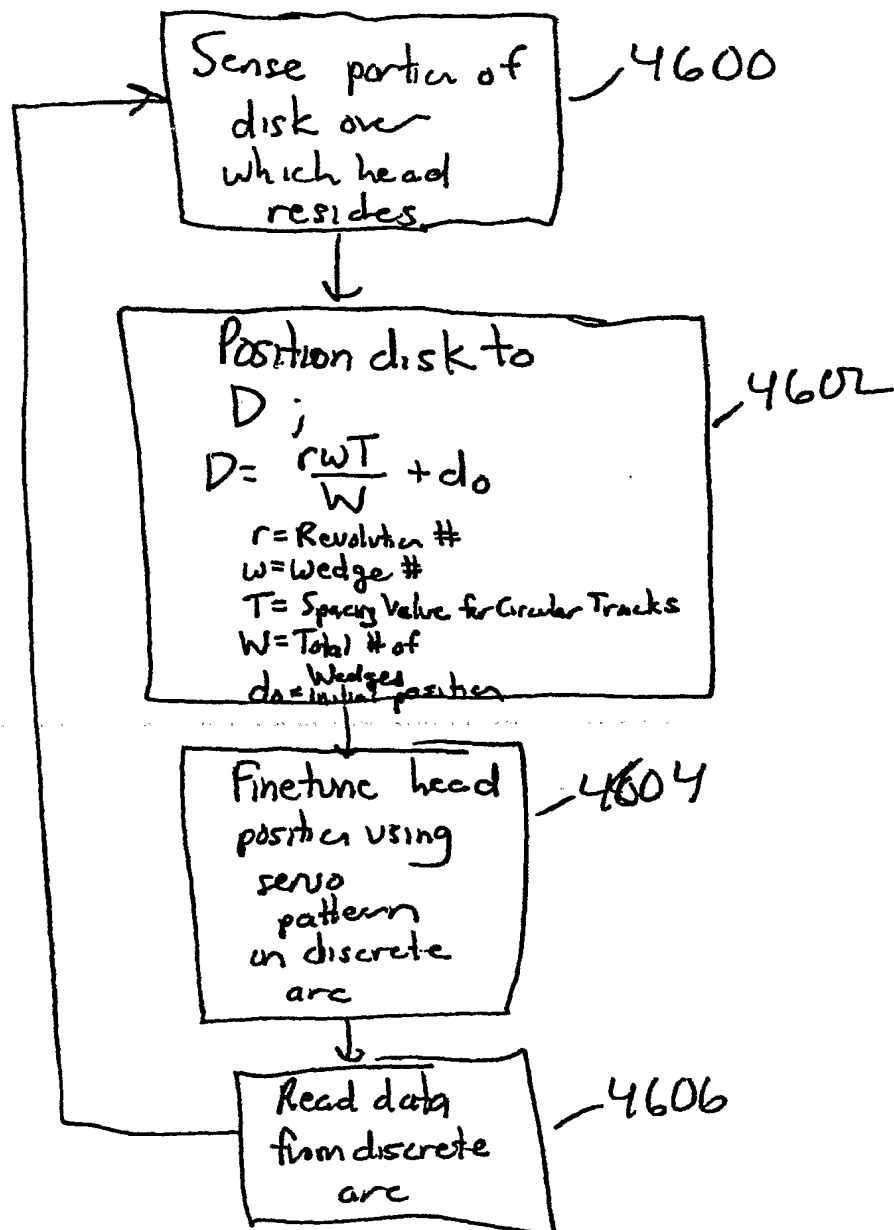 Sense portion of
disk over
which head
resides
4600
Position disk to
D ;
D= rwT/W + do
r = Revolution #
w = Wedge #
T = Spacing Value for Circular Tracks
W = Total # of
Wedges
do = initial position
4602
Finetune head
position using
servo
pattern
on discrete
arc
4604
Read data
from discrete
arc
4606